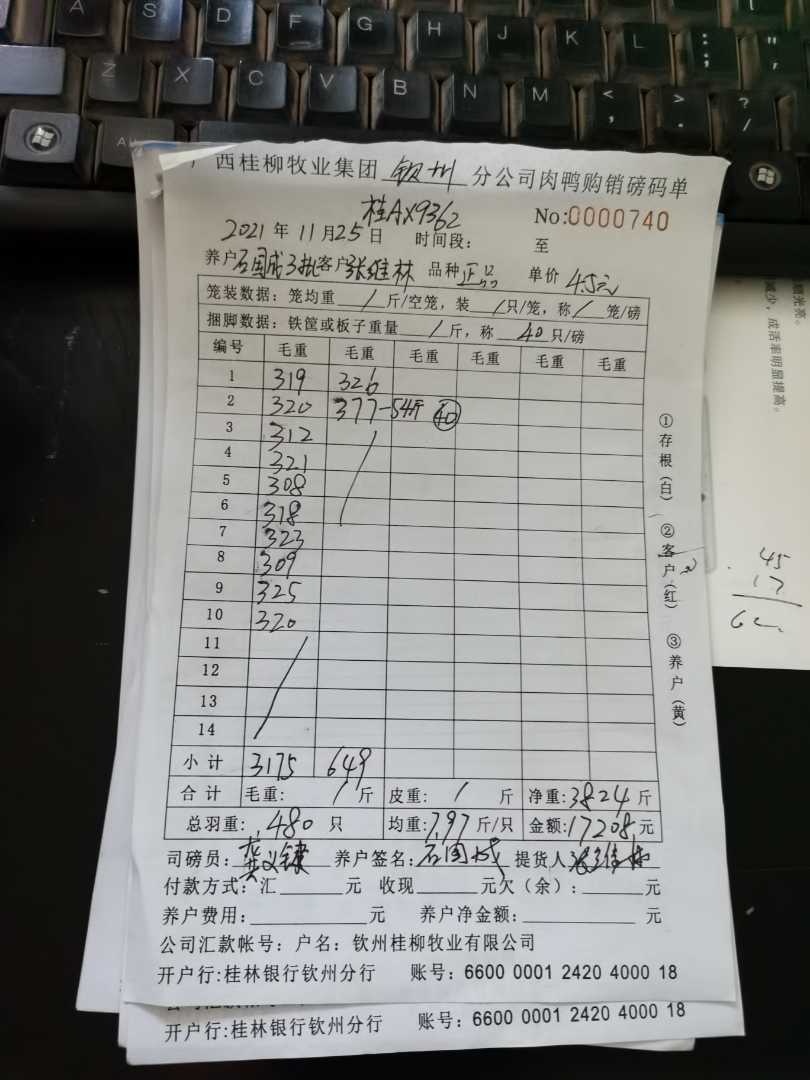 A S D F G H J K L : ; " '
Z X C V B N M < , > . ? /
Alt
广西桂柳牧业集团 钦州 分公司肉鸭购销磅码单
桂AX9362 No:0000740
2021年11月25日 时间段: 至
养户石国成3批客户张继林 品种正品 单价4.5元
笼装数据:笼均重 / 斤/空笼,装 / 只/笼,称 / 笼/磅
捆脚数据:铁筐或板子重量 / 斤,称 40 只/磅
编号 毛重 毛重 毛重 毛重 毛重 毛重
1 319 326
2 320 377-54斤 40
3 312
4 321
5 308
6 318
7 323
8 309
9 325
10 320
11
12
13
14
小计 3175 649
合计 毛重: / 斤 皮重: / 斤 净重:3824斤
总羽重:480只 均重:7.97斤/只 金额:17208元
司磅员: 养户签名:石国成 提货人
付款方式:汇______元 收现______元欠(余):______元
养户费用:____________元 养户净金额:____________元
公司汇款帐号:户名:钦州桂柳牧业有限公司
开户行:桂林银行钦州分行 账号:6600 0001 2420 4000 18
开户行:桂林银行钦州分行 账号:6600 0001 2420 4000 18
①存根(白)
②客户(红)
③养户(黄)
减少,成活率明显提高。
45
17